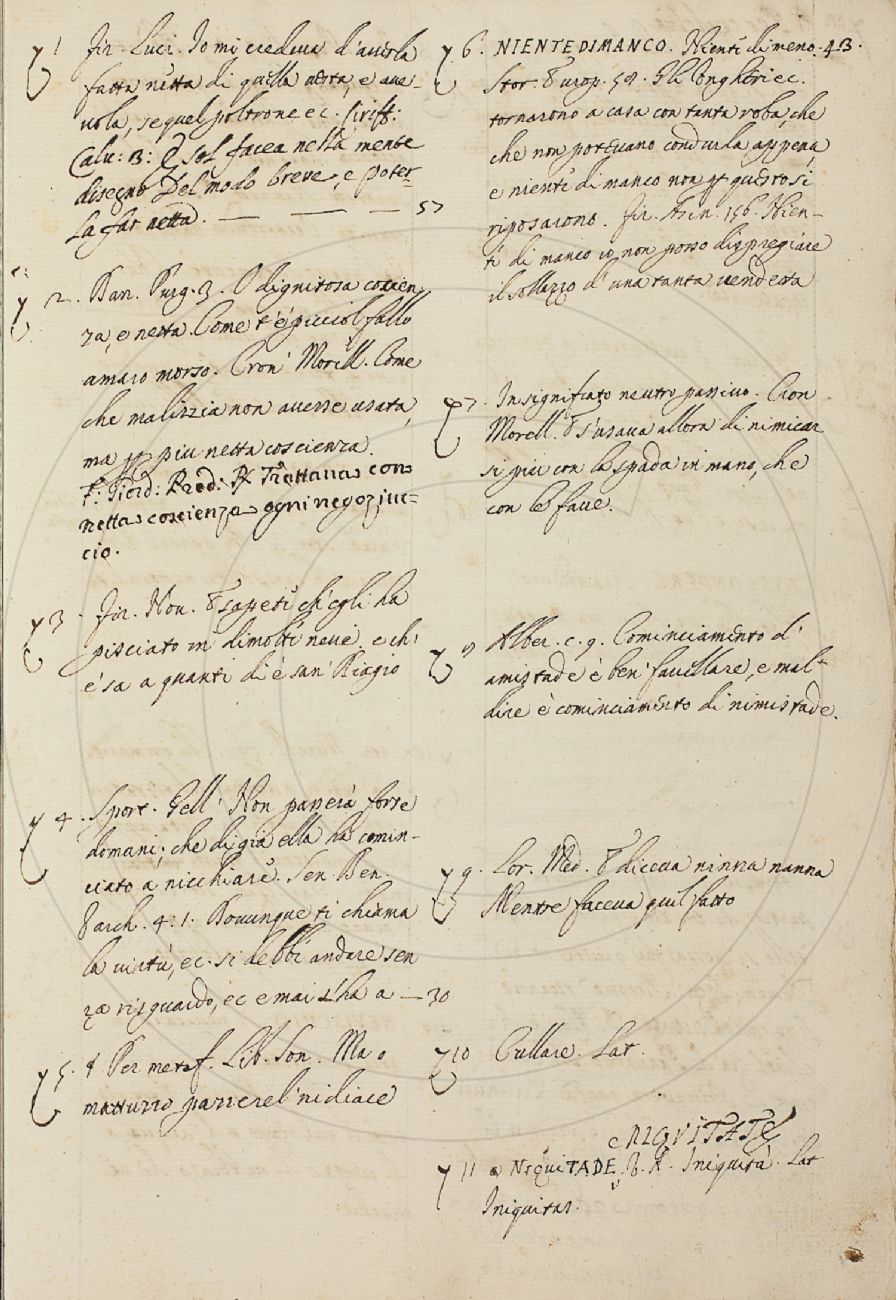 1 Fir. Luci. Io mi credeva d'averla
fatta netta di quella vesta, e ave-
vola, se quel poltrone ec. Ciriff:
Calv: 3: E sol facea nella mente
disegno Del modo breve, e poter-
La far netta. — — — 57
2. Dan. Purg. 3. O dignitosa coscien
za, e netta. Come t'è picciol fallo
amaro morso. Cron. Morell. Come
che malizzia non avesse usata,
ma più netta coscienza.
F: Giord: Pred: R. Trattava con
netta coscienza ogni negoziuc=
cio.
3. Fir. Nov. E sapete ch'egli ha
pisciato in dimolte neve, e ch'
e' sa a quanti dì è san' Biagio
4. Sport. Gell. Non passerà forse
domani; che di già ella ha comin-
ciato a nicchiare. Sen. Ben.
Varch. 4. 1. Dovunque ti chiama
la virtù, ec. si debbe andare sen
za risguardo, ec e mai s'ha a — 30
5. Per metaf. Lib. Son. Ma o
mattuzzo passerel' nidiace
6. NIENTEDIMANCO. Niente dimeno. 43.
Stor. Europ. 59. Gli Ongheri ec.
tornarono a casa con tanta roba, che
che non potevano condurla appena,
e niente di manco non per questo si
riposarono. Fir. Asin. 156. Nien-
te di manco io non posso dispregiare
il sollazzo d'una tanta vendetta
7. In significato neutro passivo. Cron
Morell. E s'usava allora di nimicar
si più con la spada in mano, che
con le fave.
8 Alber. c. 9. Cominciamento d'
amistade è ben' favellare, e mal-
dire è cominciamento di nimistade.
9. Lor. Med. E diceva ninna nanna
Mentre faceva quel fatto
10 Cullare. Lat.
NIQUITATE
11 NIQUITADE, V. A. Iniquità. Lat
Iniquitas.